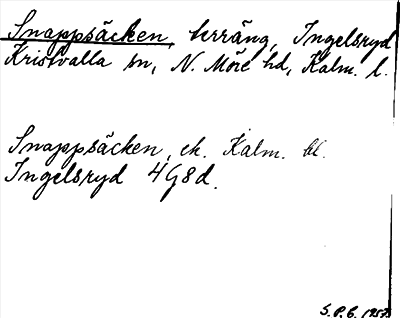 Snappsäcken, terräng, Ingelsryd
Kristvalla sn, N. Möre hd, Kalm. l.
Snappsäcken, ek. Kalm. bl.
Ingelsryd 4G8d.
S.P.B. 1957